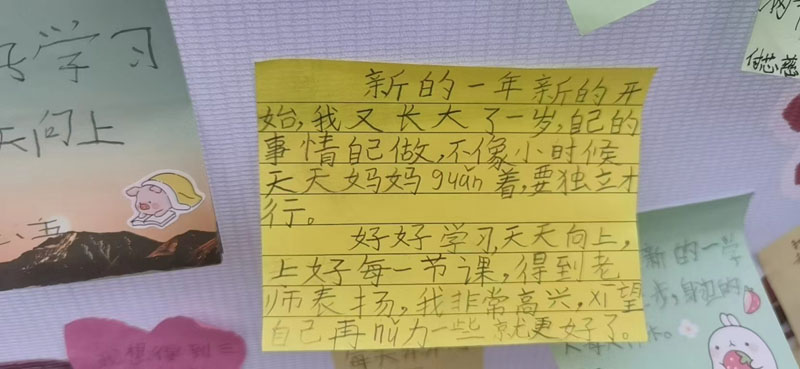 好学习
天向上
新的一年新的开
始,我又长大了一岁,自己的
事情自己做,不像小时候
天天妈妈guǎn着,要独立才
行。
好好学习,天天向上,
上好每一节课,得到老
师表扬,我非常高兴,xī望
自己再nǔ力一些就更好了。
新的一学